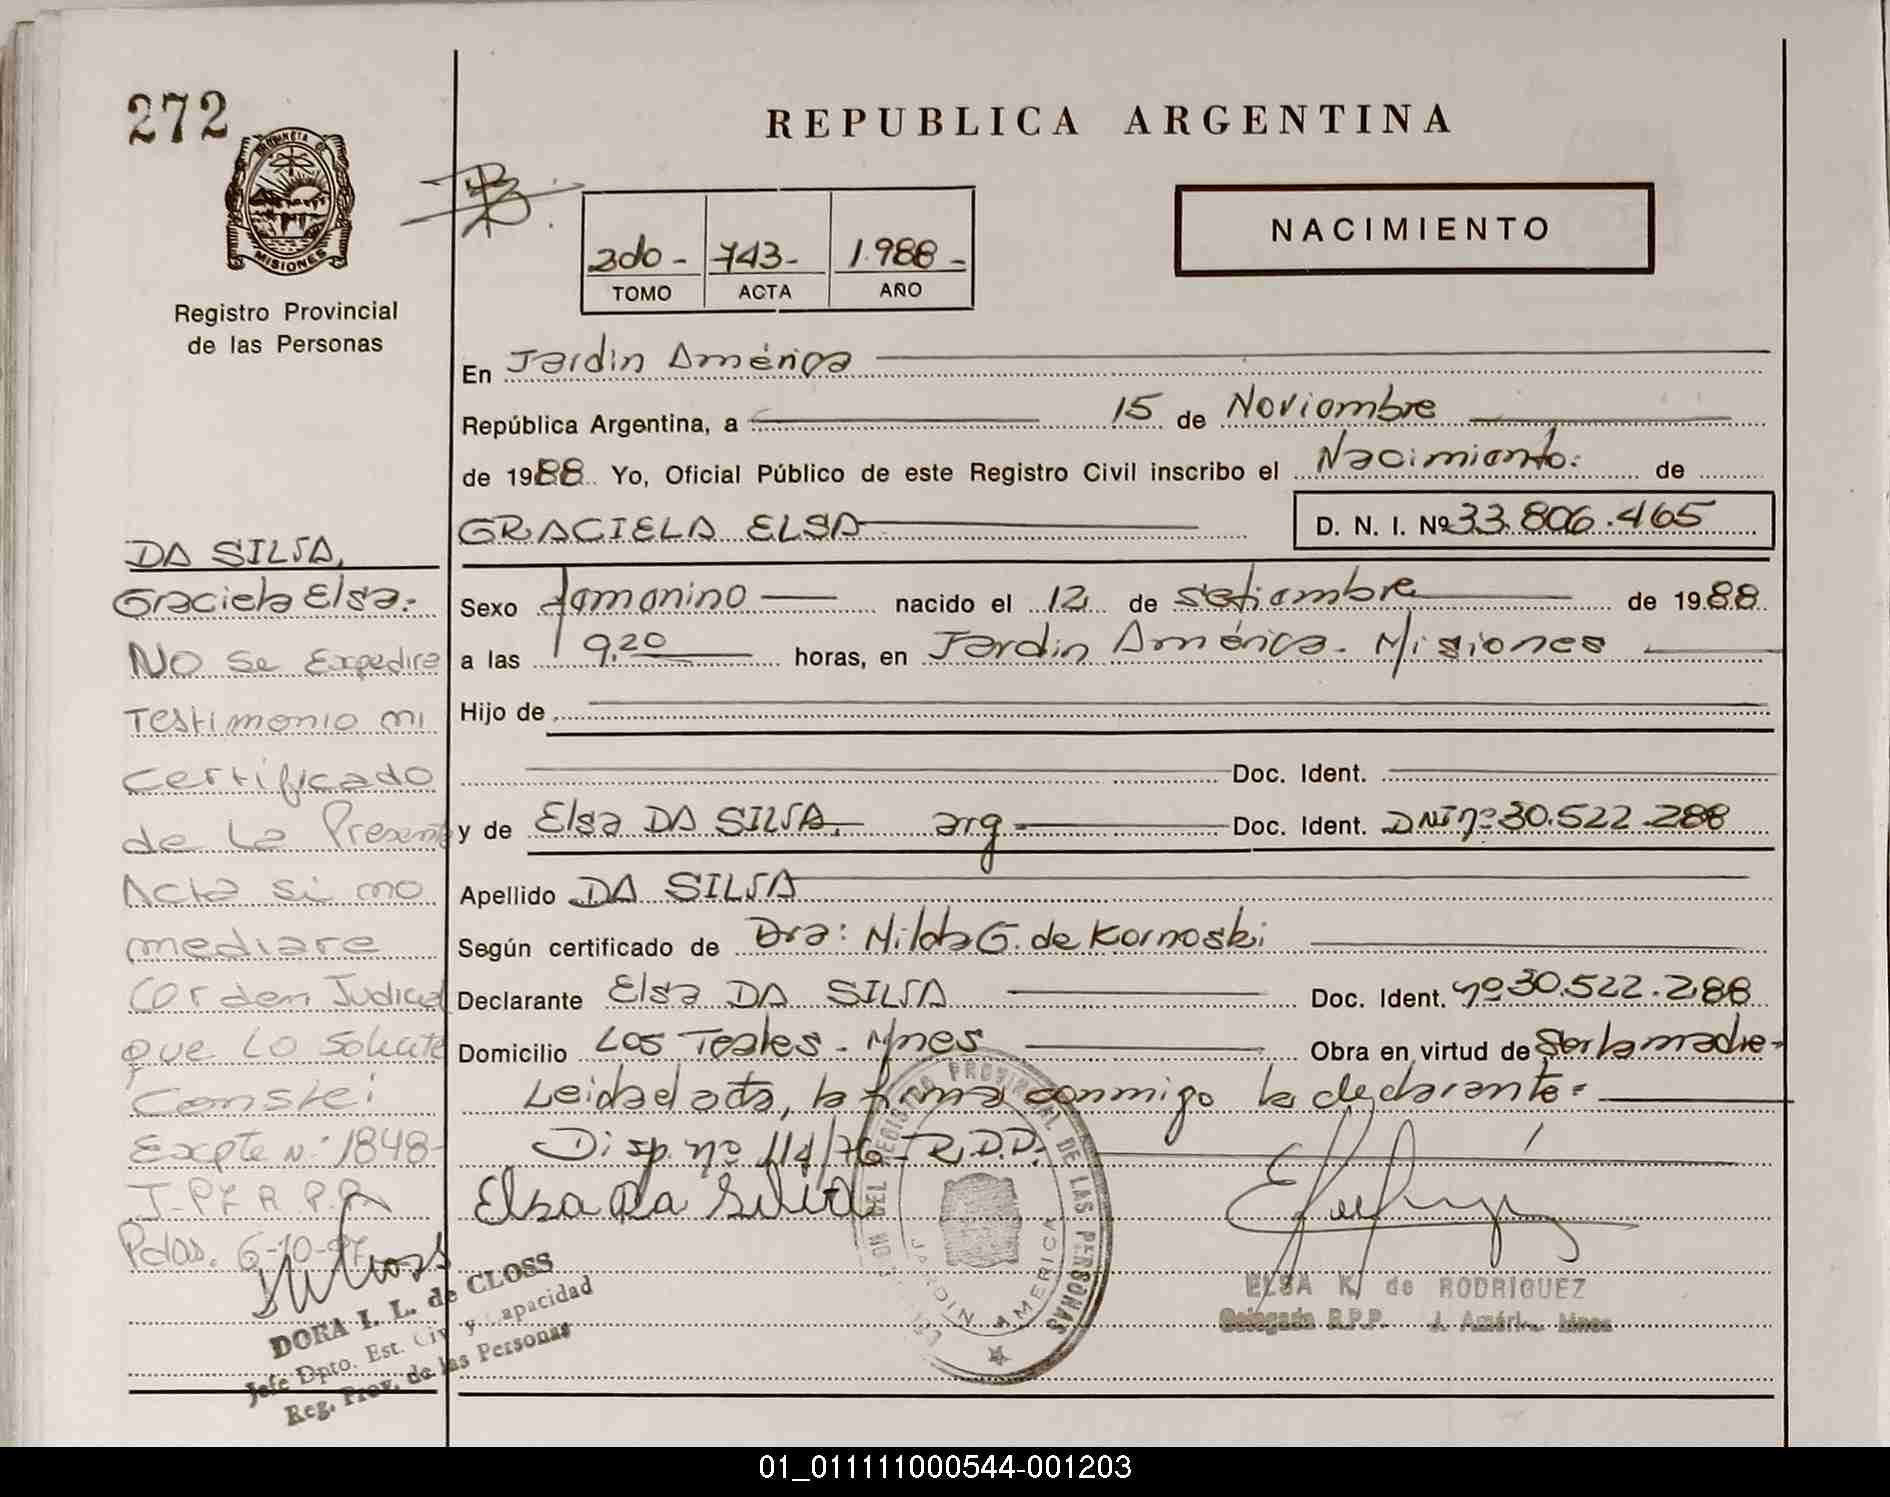 272
PROVINCIA DE
MISIONES
Registro Provincial
de las Personas
REPUBLICA ARGENTINA
NACIMIENTO
2do - 743 - 1.988 -
TOMO ACTA AÑO
En Jardin América
República Argentina, a 15 de Noviembre
de 1988 Yo, Oficial Público de este Registro Civil inscribo el Nacimiento. de
GRACIELA ELSA D. N. I. Nº 33.806.465
Sexo femenino nacido el 12 de Setiembre de 1988
a las 9,20 horas, en Jardin América. Misiones
Hijo de
Doc. Ident.
y de Elsa DA SILVA. arg Doc. Ident. DNI nº 30.522.288
Apellido DA SILVA
Según certificado de Dra: Nilda G. de Kornoski
Declarante Elsa DA SILVA Doc. Ident. nº 30.522.288
Domicilio Los Teales - Mnes Obra en virtud de Ser la madre -
Leida el acta, la firma conmigo la declarante =
Disp. nº 114/76 - R.D.P.
Elsa Da Silva
DEL REGISTRO PROVINCIAL DE LAS PERSONAS
JARDIN AMERICA
ELSA K. de RODRIGUEZ
Delegada R.P.P. J. Améri. Mnes
DA SILVA,
Graciela Elsa.-
No Se Expedira
Testimonio ni
certificado
de La Presente
Acta si no
mediare
Orden Judicial
que Lo Solicite
Conste:
Expte Nº 1848-
Pdas. 6-10-97
DORA I. L. de CLOSS
Jefe Dpto. Est. Civ y Capacidad
Reg. Prov. de las Personas
01_011111000544-001203